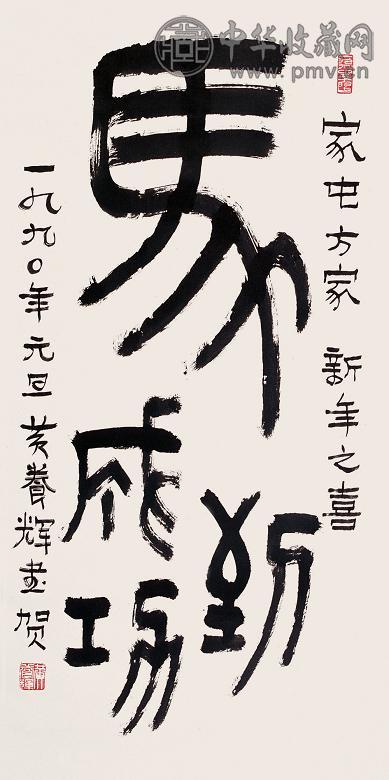 中华收藏网
www.pmv.cn
家屯方家 新年之喜
馬到成功
一九九〇年元旦黄養辉書贺